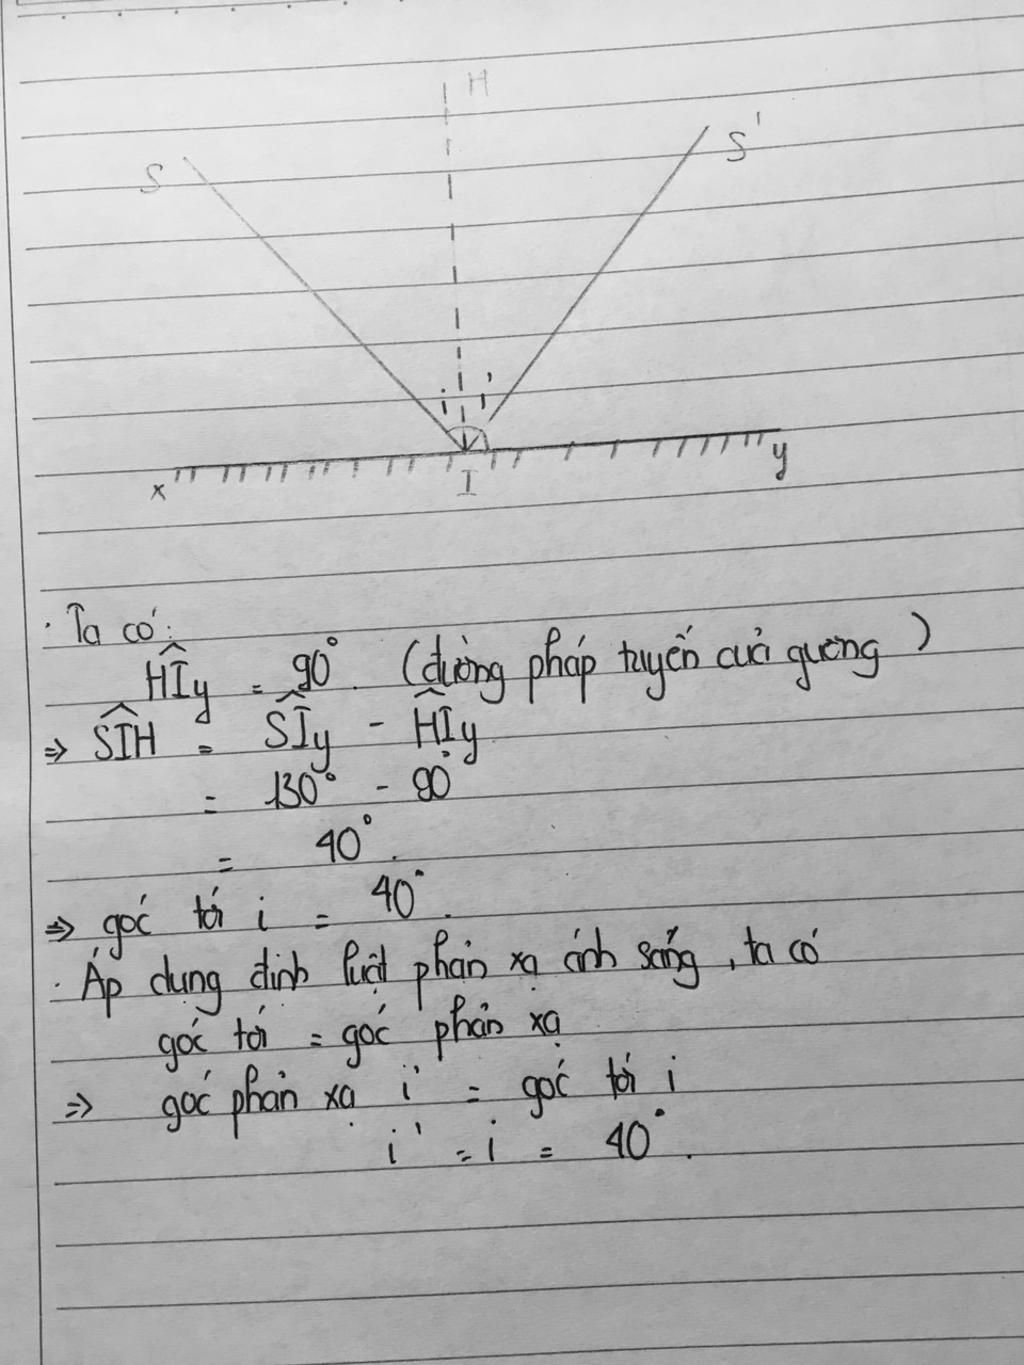 H
S
S'
i i'
x I y
. Ta có:
HÎy = 90°. (đường pháp tuyến của gương)
=> SÎH = SÎy - HÎy
= 130° - 90°
= 40°.
=> góc tới i = 40°.
. Áp dụng định luật phản xạ ánh sáng, ta có
góc tới = góc phản xạ
=> góc phản xạ i' = góc tới i
i' = i = 40°.